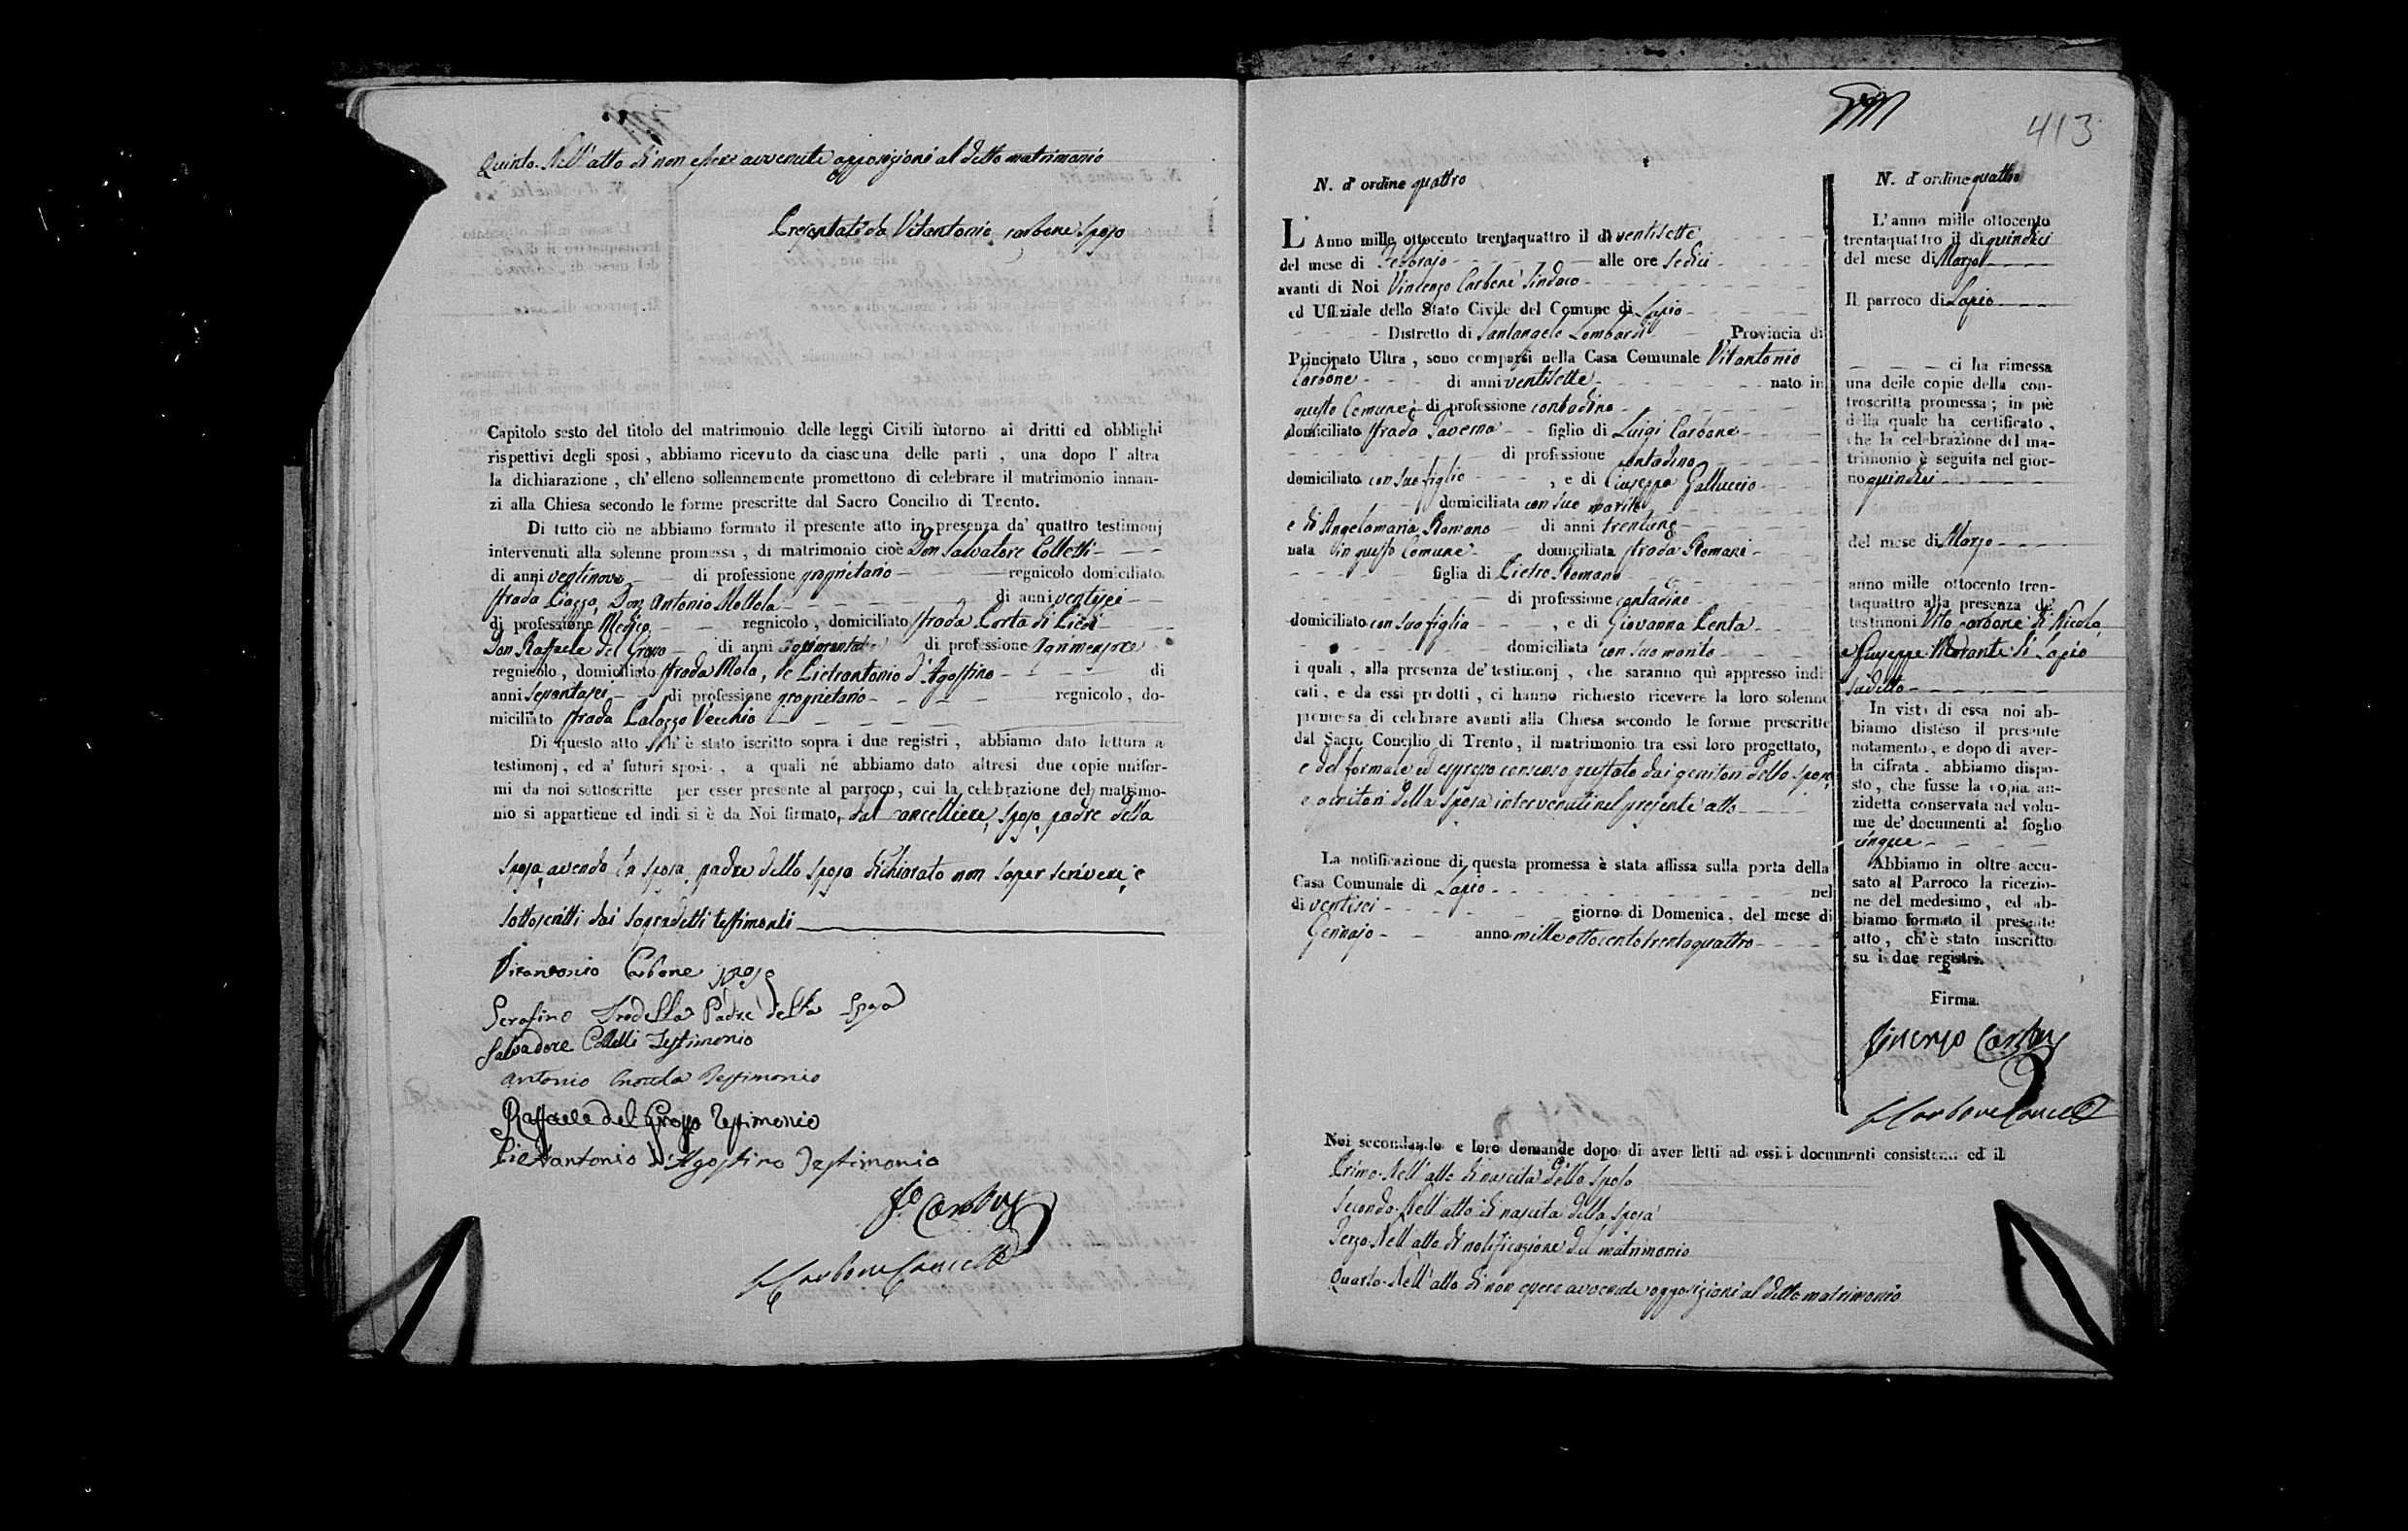 Quinto. Nell'atto di non essere avvenute opposizioni al detto matrimonio
Presentati da Vitantonio Carbone sposo
Capitolo sesto del titolo del matrimonio delle leggi Civili intorno ai dritti ed obblighi
rispettivi degli sposi, abbiamo ricevuto da ciascuna delle parti, una dopo l'altra
la dichiarazione, ch'elleno sollennemente promettono di celebrare il matrimonio innan-
zi alla Chiesa secondo le forme prescritte dal Sacro Concilio di Trento.
Di tutto ciò ne abbiamo formato il presente atto in presenza da' quattro testimonj
intervenuti alla solenne promessa, di matrimonio cioè Don Salvatore Colletti
di anni ventinove di professione proprietario regnicolo domiciliato
strada Piazza, Don Antonio Mottola di anni ventisei
di professione Medico regnicolo, domiciliato strada Porta di
Don Raffaele del Grosso di anni di professione
regnicolo, domiciliato strada Mola, e Pietrantonio d'Agostino di
anni sessantasei di professione proprietario regnicolo, do-
miciliato strada Palazzo Vecchio
Di questo atto, ch'è stato iscritto sopra i due registri, abbiamo dato lettura a
testimonj, ed a' futuri sposi, a quali né abbiamo dato altresì due copie unifor-
mi da noi sottoscritte per esser presente al parroco, cui la celebrazione del matrimo-
nio si appartiene ed indi si è da Noi firmato, dal cancelliere, sposo, padre della
sposa, avendo la sposa, padre dello sposo dichiarato non saper scrivere, e
sottoscritti dai sopradetti testimonii
Vitantonio Carbone sposo
Serafino Padre della Sposa
Salvadore Colletti Testimonio
Antonio Testimonio
Raffaele del Grosso Testimonio
Pietrantonio d'Agostino Testimonio
Carbone
Carbone Cancell
413
N. d'ordine quattro
L'Anno mille ottocento trentaquattro il dì ventisette
del mese di Febbrajo alle ore sedici
avanti di Noi Vincenzo Carbone Sindaco
ed Uffiziale dello Stato Civile del Comune di Lapio
Distretto di Santangelo Lombardi Provincia di
Principato Ultra, sono comparsi nella Casa Comunale Vitantonio
Carbone di anni ventisette nato in
questo Comune di professione contadino
domiciliato strada Taverna figlio di Luigi Carbone
di professione contadino
domiciliato con suo figlio, e di Giuseppa Galluccio
domiciliata con suo marito
e di Angelamaria Romano di anni trentuno
nata in questo Comune domiciliata strada Romani
figlia di Pietro Romano
di professione contadino
domiciliato con sua figlia, e di Giovanna Penta
domiciliata con suo marito
i quali, alla presenza de' testimonj, che saranno quì appresso indi
cati, e da essi prodotti, ci hanno richiesto ricevere la loro solenne
promessa di celebrare avanti alla Chiesa secondo le forme prescritte
dal Sacro Concilio di Trento, il matrimonio tra essi loro progettato,
e del formale ed espresso consenso prestato dai genitori dello sposo,
e genitori della sposa intervenuti nel presente atto
La notificazione di questa promessa è stata affissa sulla porta della
Casa Comunale di Lapio nel
dì ventisei giorno di Domenica, del mese di
Gennajo anno mille ottocento trentaquattro
Noi secondando e loro domande dopo di aver letti ad essi i documenti consistenti ed il
Primo. Nell'atto di nascita dello sposo
Secondo. Nell'atto di nascita della sposa
Terzo. Nell'atto di notificazione del matrimonio
Quarto. Nell'atto di non essere avvenute opposizioni al detto matrimonio
N. d'ordine quattro
L'anno mille ottocento
trentaquattro il dì quindici
del mese di Marzo
Il parroco di Lapio
ci ha rimessa
una delle copie della con-
troscritta promessa; in piè
della quale ha certificato,
che la celebrazione del ma-
trimonio è seguita nel gior-
no quindici
del mese di Marzo
anno mille ottocento tren-
taquattro alla presenza de'
testimoni Vito Carbone di Nicola,
e Giuseppe Morante di Lapio
sudetto
In vista di essa noi ab-
biamo disteso il presente
notamento, e dopo di aver-
la cifrata, abbiamo dispo-
sto, che fusse la copia an-
zidetta conservata nel volu-
me de' documenti al foglio
cinque
Abbiamo in oltre accu-
sato al Parroco la ricezio-
ne del medesimo, ed ab-
biamo formato il presente
atto, ch'è stato inscritto
su i due registri.
Firma.
Vincenzo Carbone
Carbone Cancell